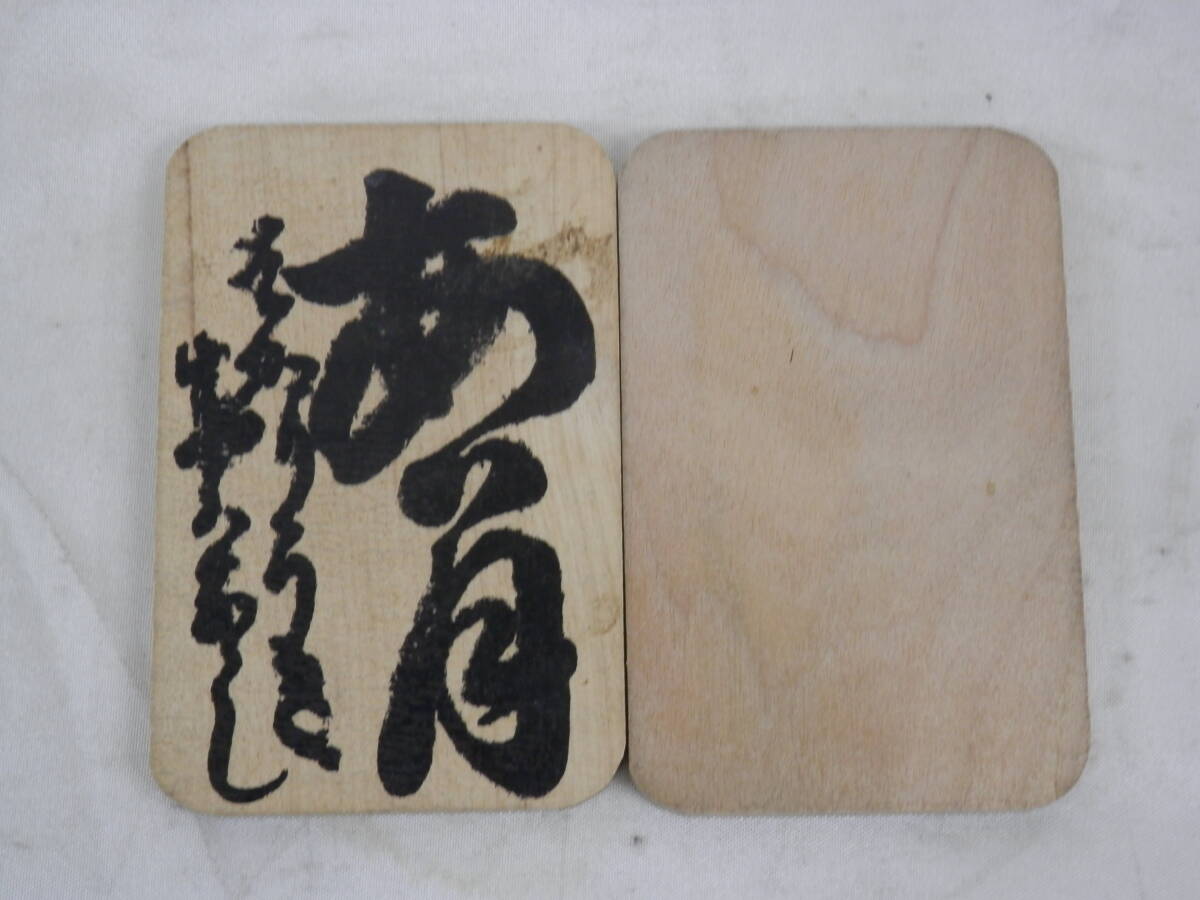 あか月
はかりうき
物はなし